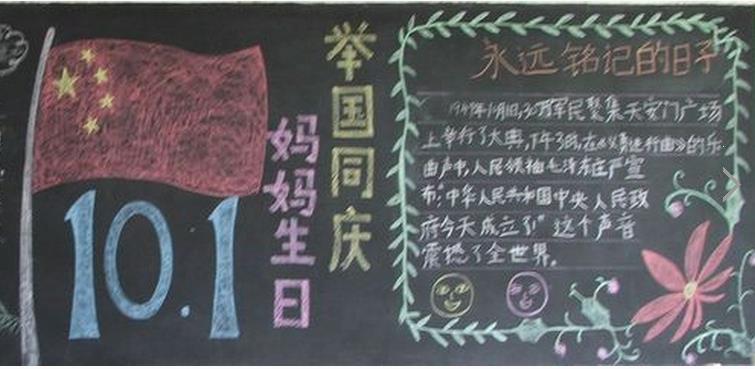 10.1
举国同庆
妈妈生日
永远铭记的日子
1949年10月1日,30万军民聚集天安门广场
上举行了大典,下午3时,在《义勇进行曲》的乐
曲声中,人民领袖毛泽东庄严宣
布:"中华人民共和国中央人民政
府今天成立了!"这个声音
震撼了全世界。